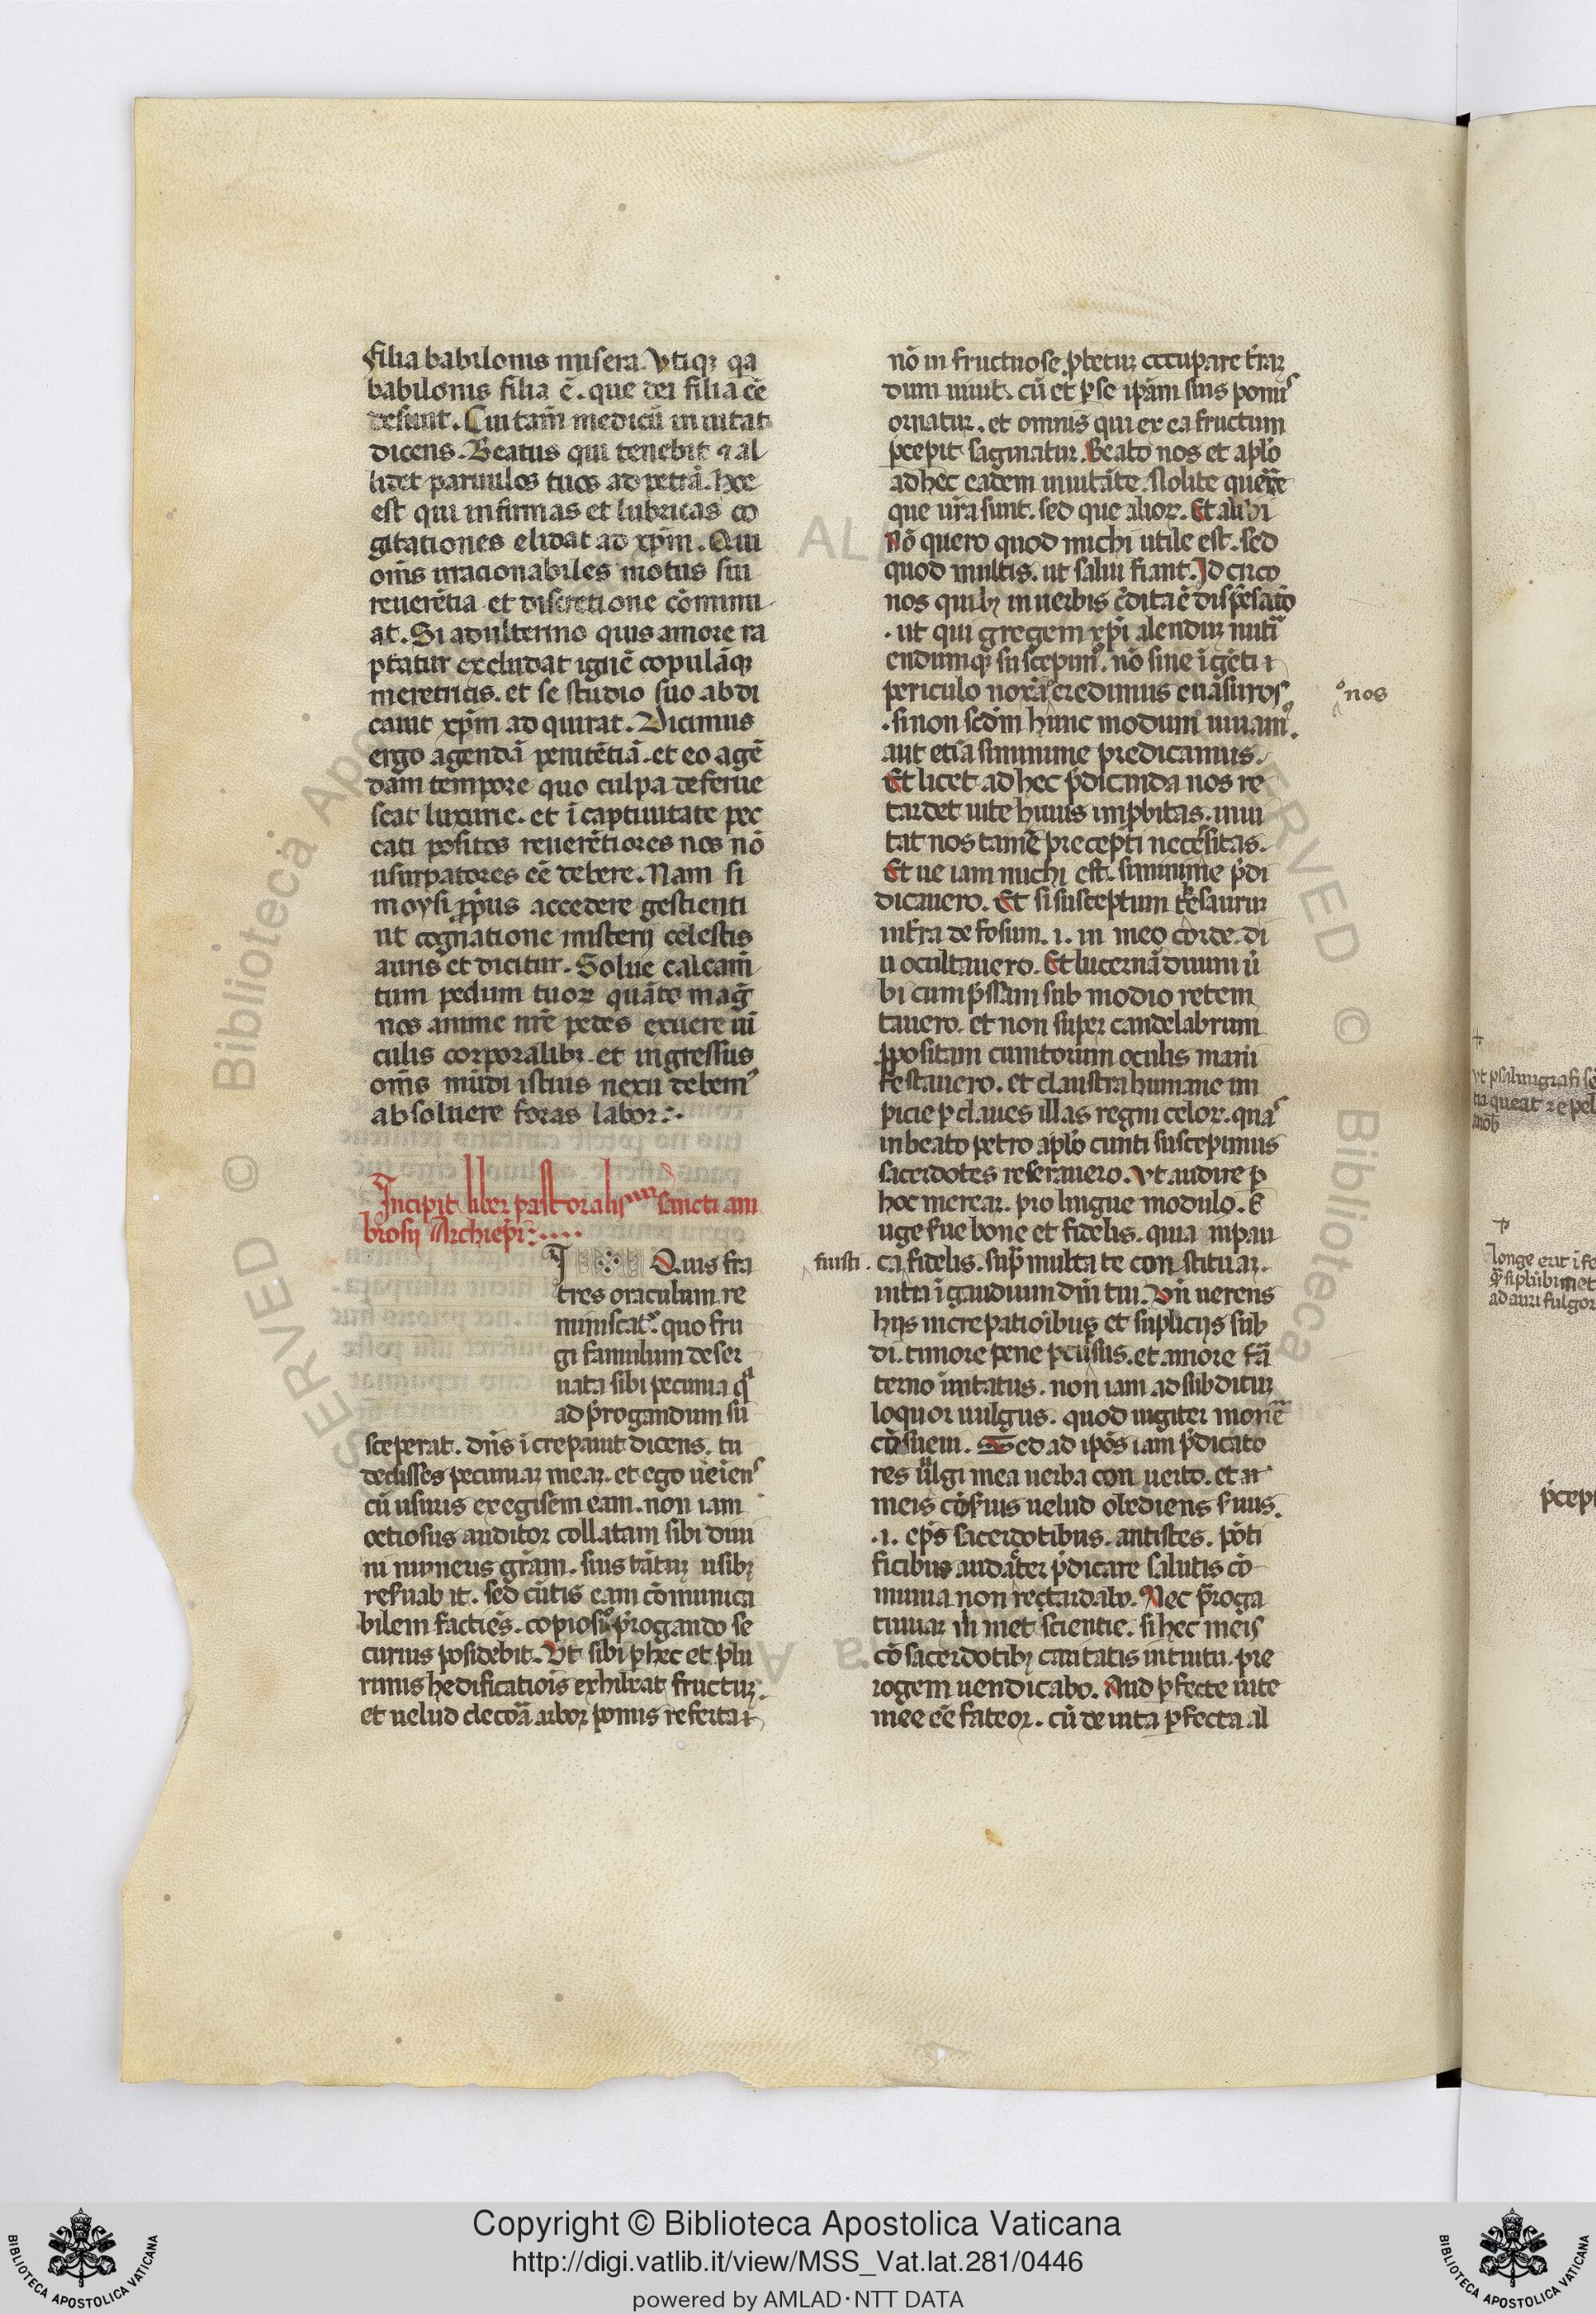 filia babilonis misera. Vtiqꝫ qa
babilonis filia ē. que dei filia eē
desiuit. Cui tam̄ medicū inuitat
dicens. Beatus qui tenebit ⁊ al
lidet paruulos tuos ad petrā. hoc
est qui infirmas et lubricas co
gitationes elidat ad xp̄m. Qui
om̄s irracionabiles motus sui
reuerētia et discretione cōminu
at. Si adulterino quis amore ra
ptatur excludat ignē copulāqꝫ
meretricis. et se studio suo abdi
cauit xp̄m adquirat. Dicimus
ergo agendā penitētiā. et eo agē
dam tempore quo culpa deferue
scat luxurie. et ī captiuitate pec
cati positos reuerētiores nos nō
usurpatores eē debere. Nam si
moysi ꝓpius accedere gestienti
ut cognatione misterij celestis
auris et dicitur. Solue calcam̄
tum pedum tuoꝝ quāto maḡ
nos anime nr̄e pedes exuere uī
culis corporalibꝫ. et ingressus
om̄s mūdi istius nexu debemꝰ
absoluere foras labor:·
Incipit liber pastoralis sancti am
brosij Archiepi:·....
I Quis fra
tres oraculum re
miniscatꝰ. quo fru
gi famulum deser
uata sibi pecunia qͣ
ad ꝓrogandum su
sceperat. dn̄s īcrepauit dicens. tu
dedisses pecuniaꝫ meaꝫ. et ego ueienˢ
cū usuris exegisem eam. non iam
octiosus auditor collatam sibi diui
ni muneris gr̄am. suis tātuꝫ usibꝫ
reẜuabit. sed cūtis eam cōmunica
bilem facties. copiosiꝰ ꝓrogando se
curius posidebit. Vt sibi ꝑ hec et plu
rimis hedificatiōis exhibeat fructuꝫ.
et uelud decorā arbor pomis referta ī
nō in fructuose ꝓbetuꝫ occupare t̄raꝫ
dum uiuit. cū et ꝑ se ipām suis pomiˢ
ornatur. et omnis qui ex ea fructum
ꝑcepit saginatur. Beato nos et aplō
ad hec eadem inuitāte. Nolite querē
que ur̄a sunt. sed que alioꝝ. Et alibi
Nō quero quod michi utile est. sed
quod multis. ut salui fiant. Id circo
nos quibꝫ in uerbis c̄dita ē dispēsaīo
. ut qui gregem xp̄i alenduꝫ nutī
endumqꝫ suscepimꝰ. nō sine īgēti ī
periculo noxā credimus euāsuros
ͦnos
. si non sedm̄ hunc modum uiuamꝰ.
aut etiā si minime predicamus.
Et licet ad hec p̄dicanda nos re
tardet uite huius imꝓbitas. inui
tat nos tamē precepti necesitas.
Et ue iam michi est. si minime p̄di
dicauero. Et si susceptum tħesauruꝫ
infra defosum. i. in meo corde. di
u ocultauero. Et lucernā diuini ū
bi cum p̄ssam sub modio retem
tauero. et non super candelabrum
ꝓpositam cunctorum oculis mani
festauero. et claustra humane im
picie ꝑ claues illas regni celoꝝ. quaˢ
in beato petro aplō cunti suscepimus
sacerdotes reserauero. Vt audire ꝑ
hoc merear. pro lingue modulo. E
uge ẜue bone et fidelis. quia in pau
fuisti. ca fidelis. sup̄ multa te constituaꝫ.
intra ī gaudium dn̄i tui. Vn̄ uerens
hijs increpatiōibus et suplicijs sub
di. timore pene ꝑcūsus. et amore fā
terno imitatus. non iam ad subdituꝫ
loquor uulgus. quod iugiter monē
cōsueui. Sed ad ipōs iam p̄dicato
res uulgi mea uerba conuerto. et a
meis cōẜuis uelud obediens ẜuus.
.i. epīs sacerdotibus. antistes. pōti
ficibus audaēter p̄dicare salutis cō
munia non rectardabo. Nec p̄roga
tiuaꝫ m̄ met scientie. si hec meis
cōsacerdotibꝫ caritatis intuitu. pre
rogem uendicabo. Aud ꝑfecte uite
mee eē fateor. cū de uita ꝑfecta al
ut psalmigrafi
queat repel
longe erit
ad auri fulgor
p̄cept
Copyright © Biblioteca Apostolica Vaticana
http://digi.vatlib.it/view/MSS_Vat.lat.281/0446
powered by AMLAD·NTT DATA
BIBLIOTECA APOSTOLICA VATICANA
BIBLIOTECA APOSTOLICA VATICANA